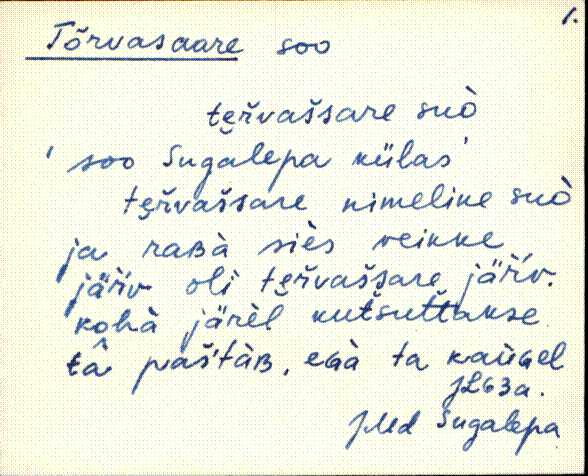 1.
Tõrvasaare soo
te̮ŕvaššare suò
' soo Sugalepa külas'
te̮ŕvaššare nimeline suò
ja raʙà siès veikke
järìv oli te̮ŕvaššare järìv.
kohà järèl kutsuttakse
tâ paštàʙ, eɢà ta kaùɢel
JMd Sugalepa